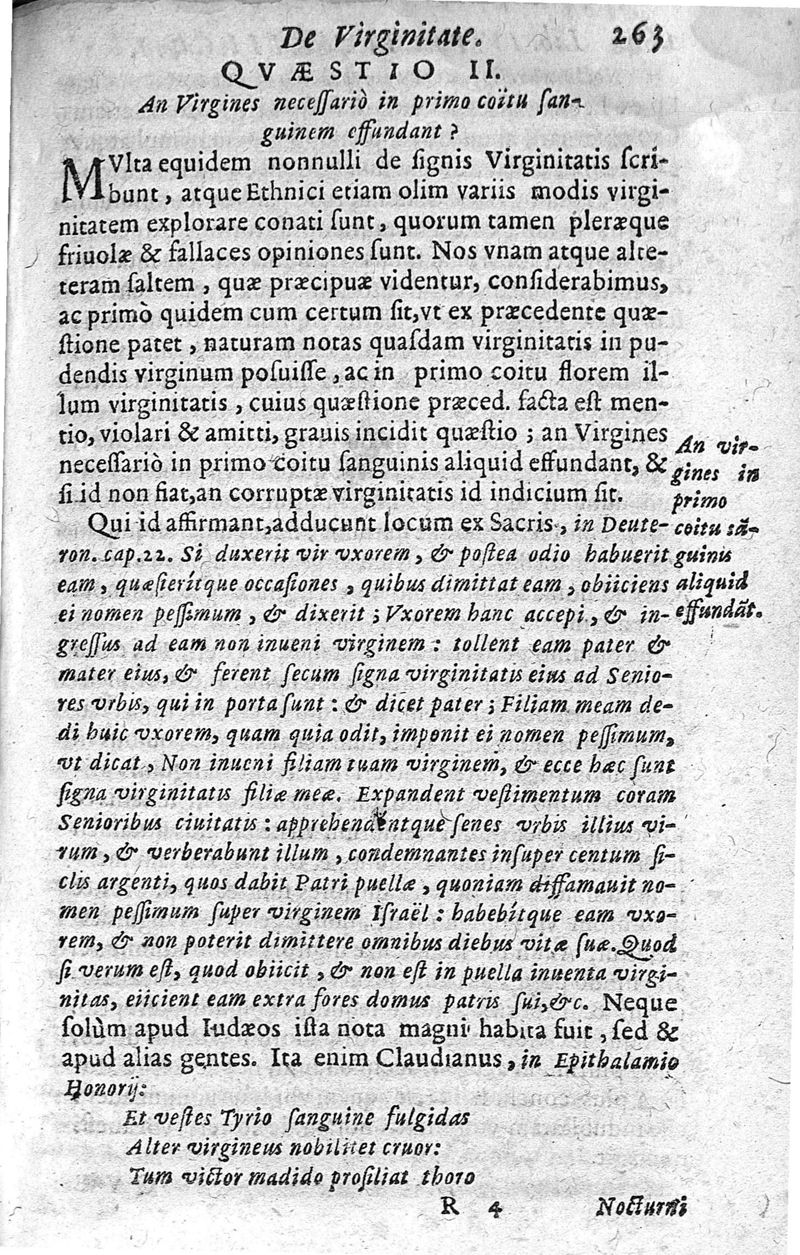 De Virginitate. 263
QVÆSTIO II.
An Virgines neceſſariò in primo coïtu ſan-
guinem effundant?
MVlta equidem nonnulli de ſignis Virginitatis ſcri-
bunt, atque Ethnici etiam olim variis modis virgi-
nitatem explorare conati ſunt, quorum tamen pleræque
friuolæ & fallaces opiniones ſunt. Nos vnam atque alte-
teram ſaltem, quæ præcipuæ videntur, conſiderabimus,
ac primò quidem cum certum ſit, vt ex præcedente quæ-
ſtione patet, naturam notas quaſdam virginitatis in pu-
dendis virginum poſuiſſe, ac in primo coitu florem il-
lum virginitatis, cuius quæſtione præced. facta eſt men-
tio, violari & amitti, grauis incidit quæſtio; an Virgines
neceſſariò in primo coitu ſanguinis aliquid effundant, &
ſi id non fiat, an corruptæ virginitatis id indicium ſit.
An vir-
gines in
primo
coitu sā-
guinis
aliquid
effundāt.
Qui id affirmant, adducunt locum ex Sacris, in Deute-
ron. cap. 22. Si duxerit vir vxorem, & poſtea odio habuerit
eam, quæſierítque occaſiones, quibus dimittat eam, obiiciens
ei nomen peſſimum, & dixerit; Vxorem hanc accepi, & in-
greſſus ad eam non inueni virginem: tollent eam pater &
mater eius, & ferent ſecum ſigna virginitatis eius ad Senio-
res vrbis, qui in porta ſunt: & dicet pater; Filiam meam de-
di huic vxorem, quam quia odit, imponit ei nomen peſſimum,
vt dicat, Non inueni filiam tuam virginem, & ecce hæc ſunt
ſigna virginitatis filiæ meæ. Expandent veſtimentum coram
Senioribus ciuitatis: apprehendentque ſenes vrbis illius vi-
rum, & verberabunt illum, condemnantes inſuper centum ſi-
clis argenti, quos dabit Patri puellæ, quoniam diffamauit no-
men peſſimum ſuper virginem Iſraël: habebítque eam vxo-
rem, & non poterit dimittere omnibus diebus vitæ ſuæ. Quod
ſi verum eſt, quod obiicit, & non eſt in puella inuenta virgi-
nitas, eiicient eam extra fores domus patris ſui, &c. Neque
ſolùm apud Iudæos iſta nota magni habita fuit, ſed &
apud alias gentes. Ita enim Claudianus, in Epithalamio
Honorij:
Et veſtes Tyrio ſanguine fulgidas
Alter virgineus nobilitet cruor:
Tum victor madido proſiliat thoro
R 4 Nocturni